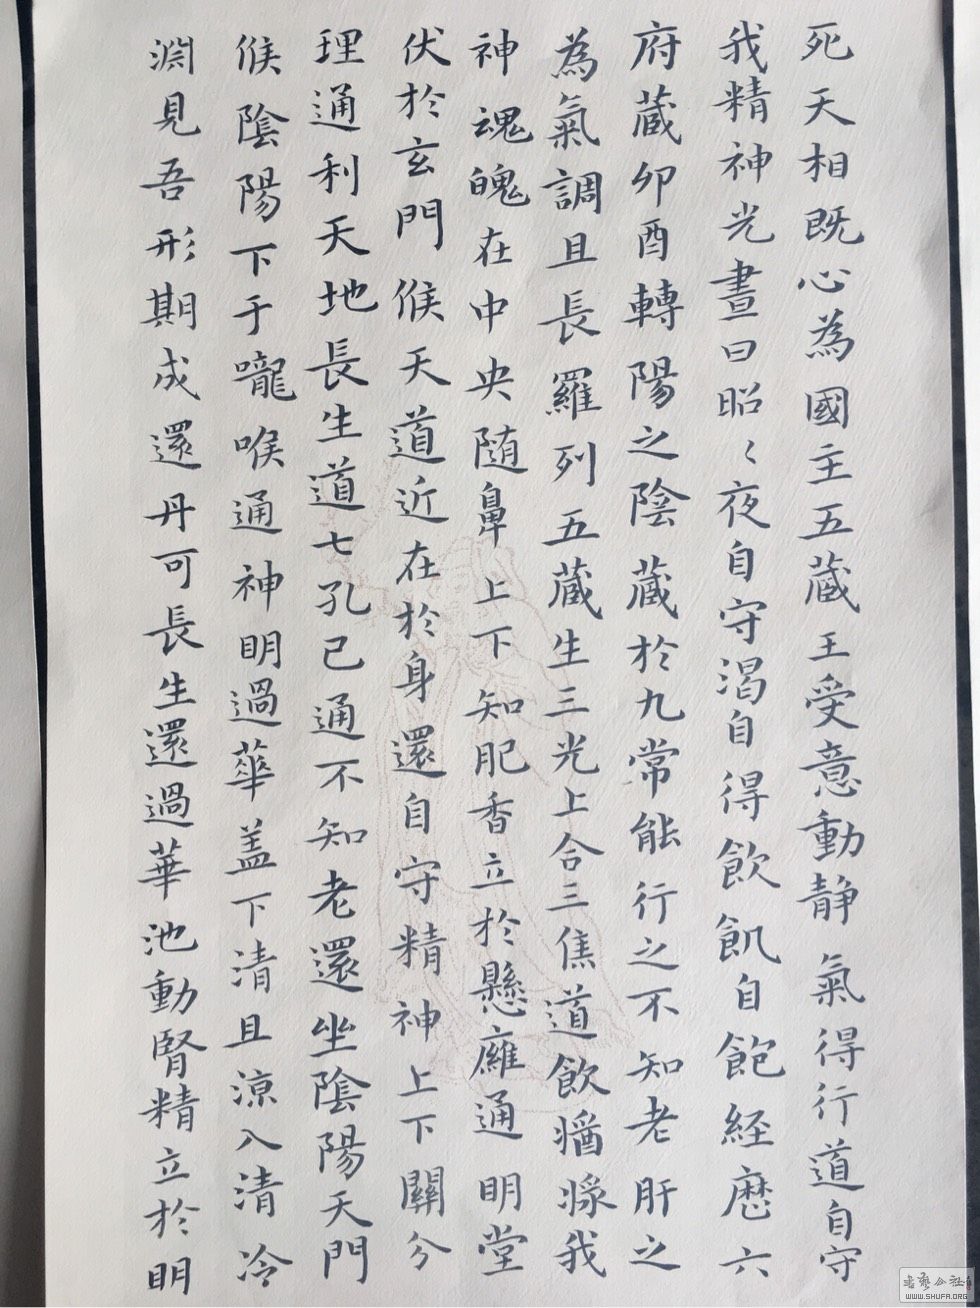 死天相既心為國主五蔵王受意動静氣得行道自守
我精神光晝日昭〻夜自守渴自得飲飢自飽経歴六
府蔵卯酉轉陽之陰蔵於九常能行之不知老肝之
為氣調且長羅列五蔵生三光上合三焦道飲酱漿我
神魂魄在中央随鼻上下知肥香立於懸廱通明堂
伏於玄門候天道近在於身還自守精神上下關分
理通利天地長生道七孔已通不知老還坐陰陽天門
候陰陽下于嚨喉通神明過華盖下清且涼入清冷
淵見吾形期成還丹可長生還過華池動腎精立於明
書藝公社
WWW.SHUFA.ORG